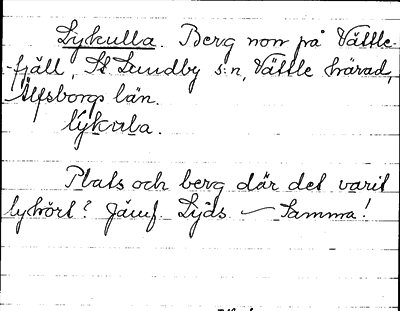 Lykulla. Berg norr på Vättle-
fjäll, St Lundby s:n, Vättle härad,
Älfsborgs län.
lykula.
Plats och berg där det varit
lyhört? Jämf. Lyds — Samma!